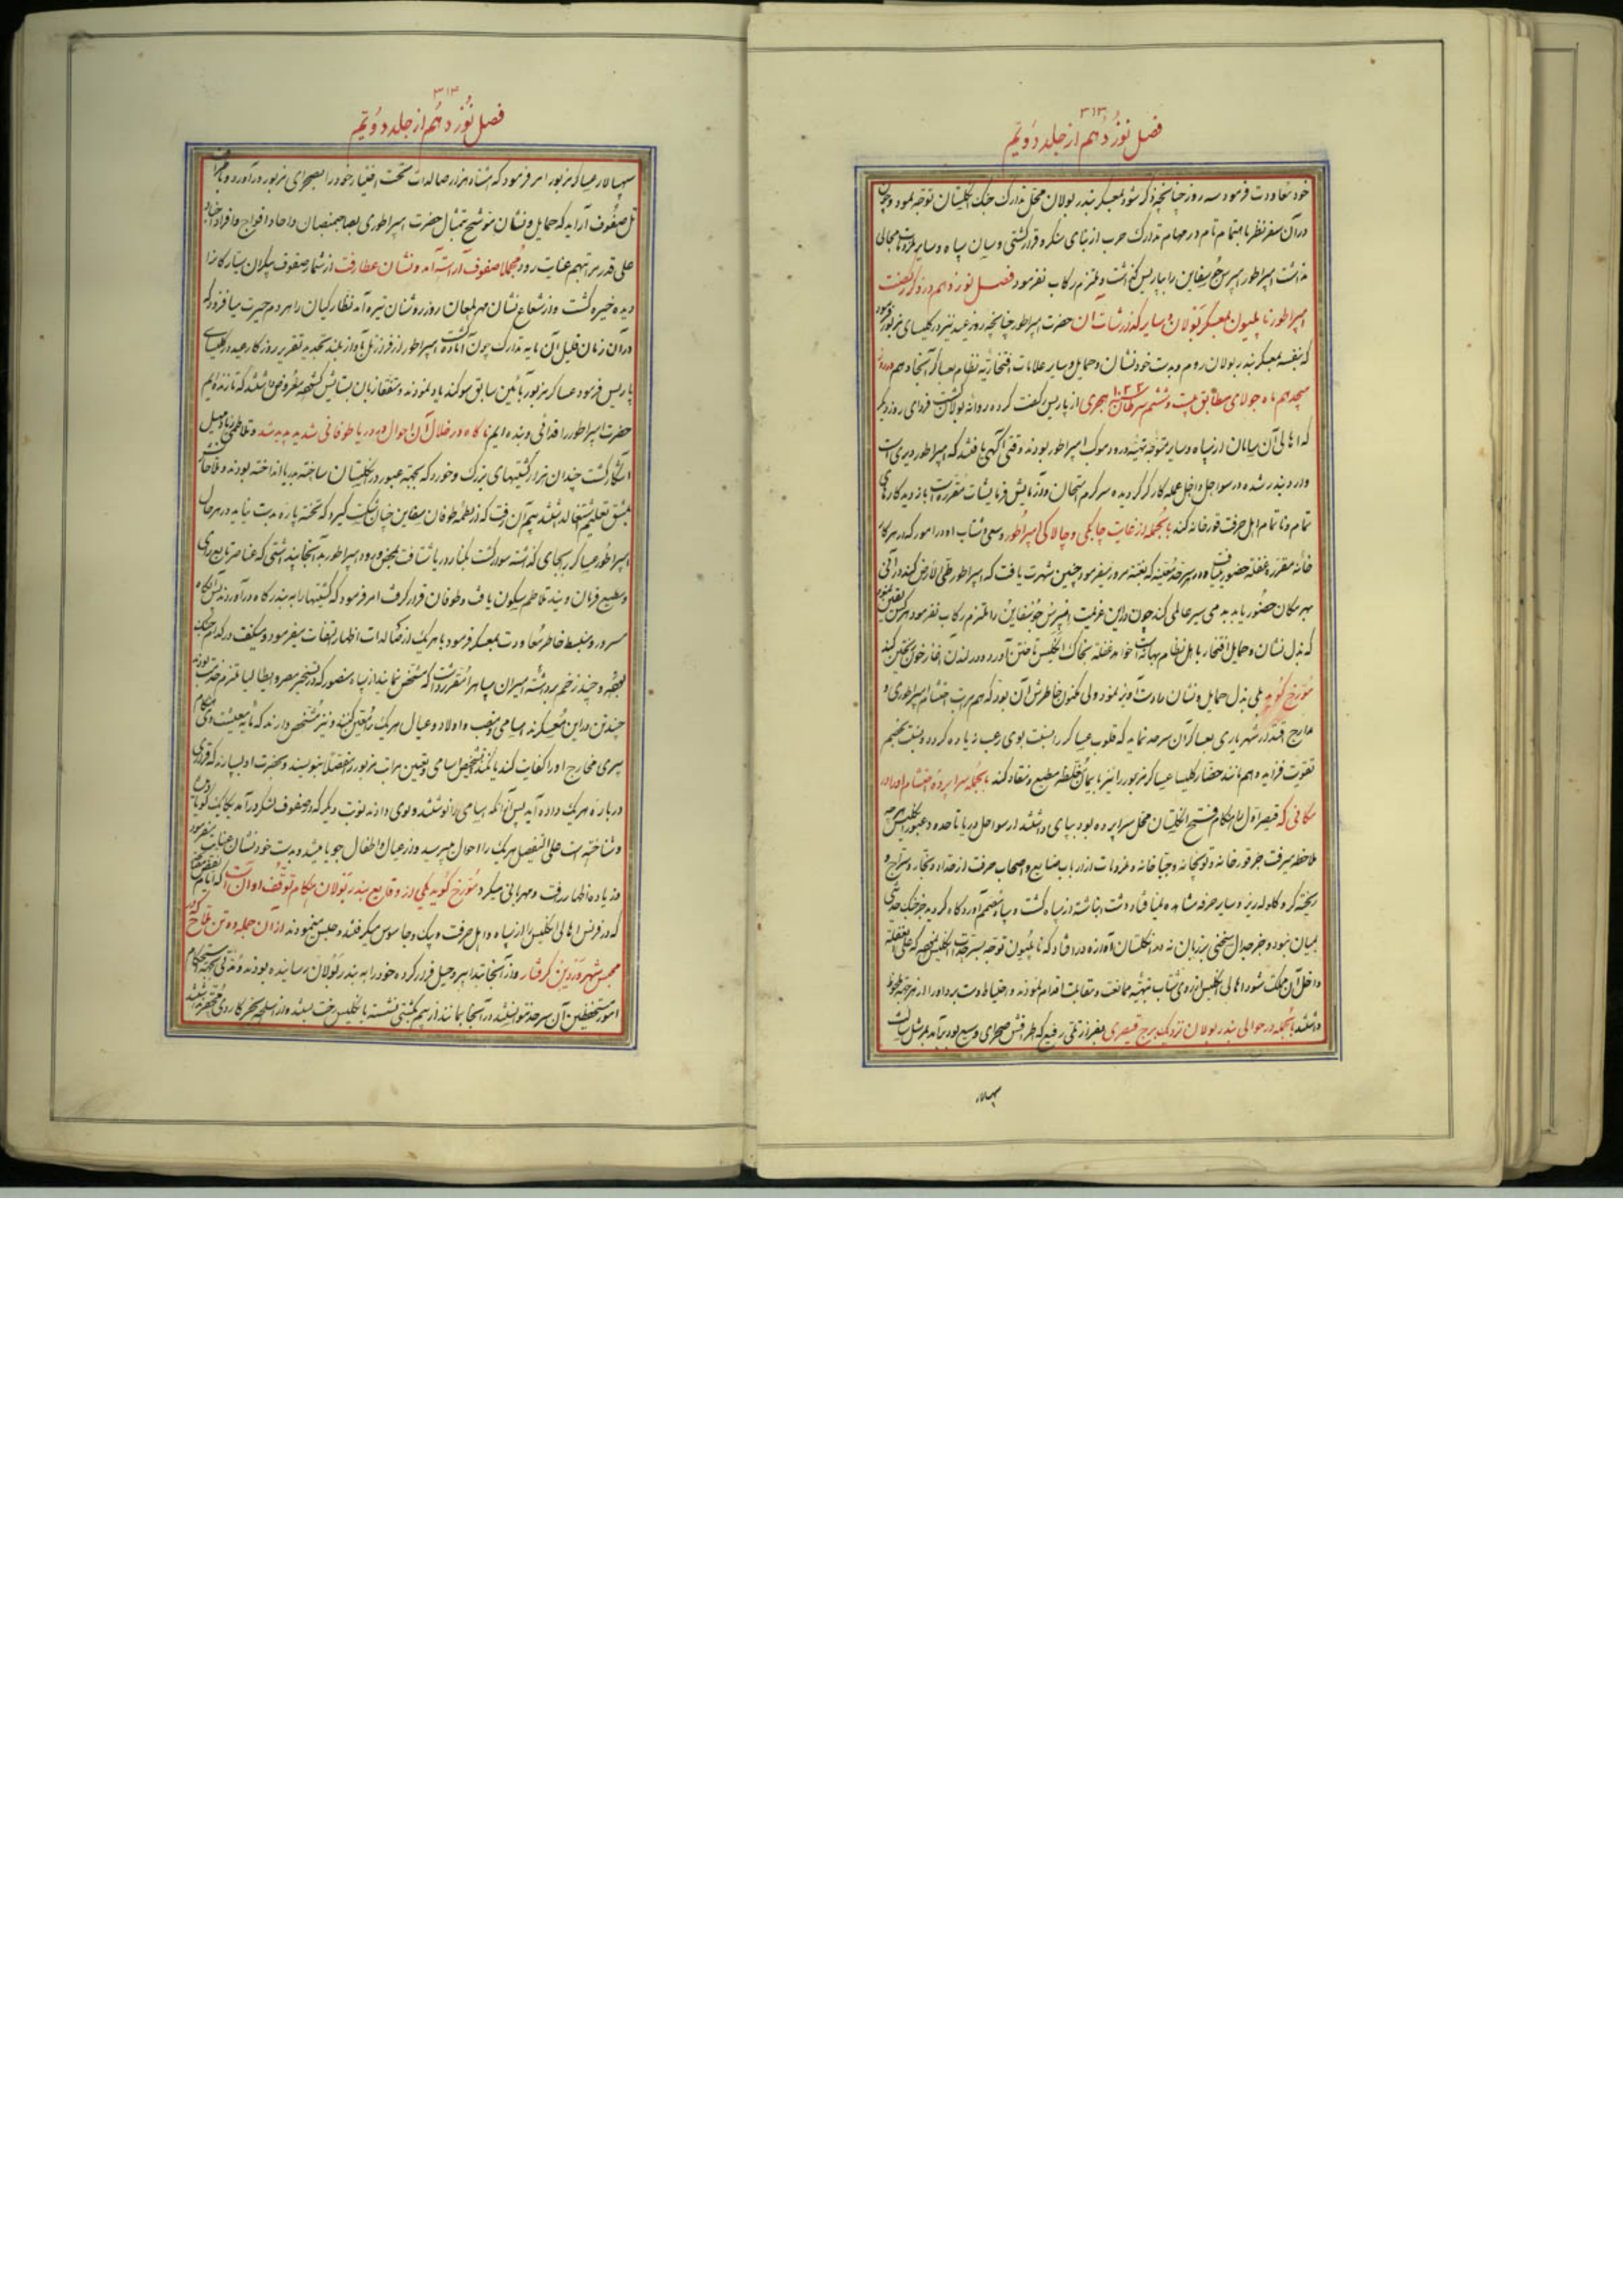 ۳۱۳
فصل نوزدهم از جلد دویم
خود معاودت فرمود سه روز چنانچه ذکر شود بمعسکر بندر بولان محل تدارک جنک انکلیستان توجه نمود و چون
در آن سفر نظر باهتمام تام در مهام تدارک حرب از بنای سنکر و قرار کشتی و سان سپاه و سایر ملزومات مجالی
نداشت امپراطور امپرس جوسفاین را بپاریس کذاشت و ملتزم رکاب نفرمود فصل نوزدهم در ذکر رفتن
امپراطور ناپلیون بمعسکر بولان و سایر کذارشات آن حضرت امپراطور چنانچه روز عید نیز در کلیسای مزبور فرمود
که بنفسه بمعسکر بندر بولان روم و بدست خود نشان و حمایل و سایر علامات افتخاریه نظام بعساکر آنجا دهم در روز
هیجدهم ماه جولای مطابق بیست و ششم سرطان هجری از پاریس رکضت کرده روانه بولان کشت فردای روز دیکر
که اهالی آن سامان از سپاه و سایر متوجه تهیه ورود موکب امپراطور بودند وقتی آکهی یافتند که امپراطور دیری است
وارد بندر شده در سواحل داخل عمله کار کر کردیده سرکرم امتحان و آزمایش فرمایشات مقرره است با زدید کارهای
تمام و ناتمام اهل حرفت قورخانه کند بالجمله از غایت چابکی و چالاکی امپراطور و سعی و شتاب او در امور که در هر کار
خانه مقرر و غفلة حضور و بهر سرحد معینه که بغتة مرور میفرمود چنین شهرت یافت که امپراطور طی الارض کند در آنی
بهر مکان حضور یابد بدمی سیر عالمی کند چون در این عزیمت امپرس جوسفاین را ملتزم رکاب نفرمود
که بذل نشان و حمایل افتخار با اهل نظام بهانه است خواهد غفلة بخاک انکلیس تاختن آورد و در لندن
مورخ کوید بلی بذل حمایل و نشان را دست آویز نمود ولی مکنون خاطرش آن بود که هم مراتب احتشام امپراطوری و
مدارج اقتدار شهریاری بعساکر آن سرحد نماید که قلوب عساکر را نسبت بوی رعب زیاده کردد
تقویت فزاید و هم مانند حضار کلیسا عساکر مزبور را نیز با ایمان مغلظه مطیع و منقاد کند بالجمله سراپرده احتشام او را در
مکانی که قیصر اول هنکام فتح انکلیستان محل سراپرده بود بپای داشتند از سواحل دریا تا حده و عبور انکلیس هر چه
ملاحظه میرفت جز قورخانه و توپخانه و جباخانه و ملزومات از ارباب صنایع و اصحاب حرفت از حداد و نجار و سراج و
ریخته کر و کلوله ریز و سایر حرفه مشاهده نمیافتاد و دشت انباشته از سپاه کشت و سپاه خصم آورد کاه کردید جز جنک حدیثی
بمیان نبود و جز جدال سخنی بر زبان نه در انکلستان آوازه در افتاد که ناپلیون توجه بسرحدات انکلیس نموده که علی الغفله
داخل آن مملکت شود اهالی انکلیس از روی شتاب بتهیه ممانعت و مقابلت اقدام نمودند و احتیاط دست برد او را از هر جهة ملحوظ
داشتند بالجمله در حوالی بندر بولان نزدیک برج قیصری بفراز تلی رفیع که اطرافش صحرای وسیع بود برآمد مارشل سالت
سپهسالار
۳۱۴
فصل نوزدهم از جلد دویم
سپهسالار عساکر مزبور امر فرمود که هشتاد هزار صالدات تحت اختیار خود را بصحرای مزبور درآورد و باطراف
تل صفوف آراید که حمایل و نشان موشح بتمثال حضرت امپراطوری بصاحبمنصبان و احاد افواج و افراد اجناد
علی قدر مراتبهم عنایت رود مجملا صفوف آراسته آمد و نشان عطا رفت از شمار صفوف بیکران ستارکانرا
دیده خیره کشت و از شعاع نشان مهر لمعان روز روشنان تیره آمد نظارکیان را هر دم حیرت میافزود که
در آن زمان قلیل آن مایه تدارک چون آماده کشت امپراطور از فراز تل بآواز بلند تجدید تقریر روز کار عید در کلیسای
پاریس فرمود عساکر مزبور بآئین سابق سوکند یاد نمودند و متفقا زبان بستایش کشوده معروض داشتند که تا زنده ایم
حضرت امپراطور را فدائی و بنده ایم ناکاه در خلال آن احوال در دریا طوفانی شدید پدید شد و تلاطمی زیاده سبیل
آشکار کشت چندان هزار کشتیهای بزرک و خورد که بجهة عبور در انکلیستان ساخته بدریا انداخته بودند و ملاحان
بمشق تعلیم اشتغال داشتند بیم آن رفت که از لطمه طوفان سفاین چنان شکست کیرد که تخته پاره بدست نیاید در هر حال
امپراطور عساکر را بجای کذاشته سواره کشت بکنار دریا شتافت بمحض ورود امپراطور بدآنجا پنداشتی که عناصر تابع رای
و مطیع فرمان ویند تلاطم سکون یافت و طوفان قرار کرفت امر فرمود که کشتیها را به بندرکاه درآوردند پس آنکاه
مسرور و منبسط خاطر معاودت بمعسکر فرمود با هریک از صالدات اظهار التفات میفرمود و میکفت در کدام جنک
بوده و چند زخم برداشته امیران سپاه را مقرر داشت که مشخص نمایند از سپاه منصور که در تسخیر مصر و ایطالیا ملتزم حضرت بوده
چند تن در این معسکرند اسامی و منصب و اولاد و عیال هریک را معین کنند و نیز مشخص دارند که مایه معیشت و
سپری مخارج او را کفایت کند یا نکند تشخص اسامی و تعیین مراتب مزبور را مفصلا بنویسند و بحضرت او بسپارند که قراری
در باره هریک داده آید پس آنکه اسامی را نوشتند و بوی دادند نوبت دیکر که در صفوف لشکر درآمد یکایک کویا
شناخته است علی التفصیل هریک را احوال میپرسید و از عیال و اطفال جویا میشد و بدست خود نشان عنایت میفرمود
و زیاده اظهار رافت و مهربانی میکرد مورخ کوید یکی از وقایع بندر بولان هنکام توقف او آنست که
که در فرنس اهالی انکلیس را از سپاه و اهل حرفت و پیک و جاسوس میکرفتند و حبس مینمودند از آن جمله دو تن ملاح که در
محبس شهر وردین کرفتار و از آنجا بتدابیر و حیل فرار کرده خود را به بندر بولان رسانیده بودند
امور مستحفظین آن سرحد نتوانستند در آنجا بمانند از بیم بکشتی نشسته بانکلیس رخت کشند و از اسلحه بجز کاردی